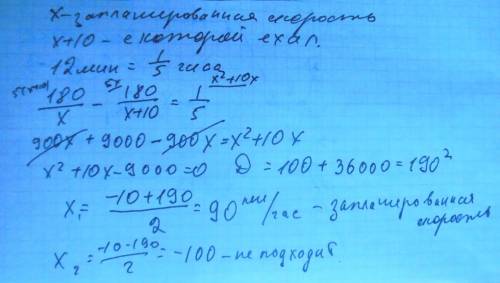 x-запланированная скорость
x+10 - с которой ехал.
12 мин = 1/5 часа
5(x+10) 5x x²+10x
180/x - 180/(x+10) = 1/5
900x + 9000 - 900x = x²+10x
x²+10x-9000=0 D=100+36000=190²
x₁ = (-10+190)/2 = 90 км/час - запланированная скорость
x₂ = (-10-190)/2 = -100 - не подходит.